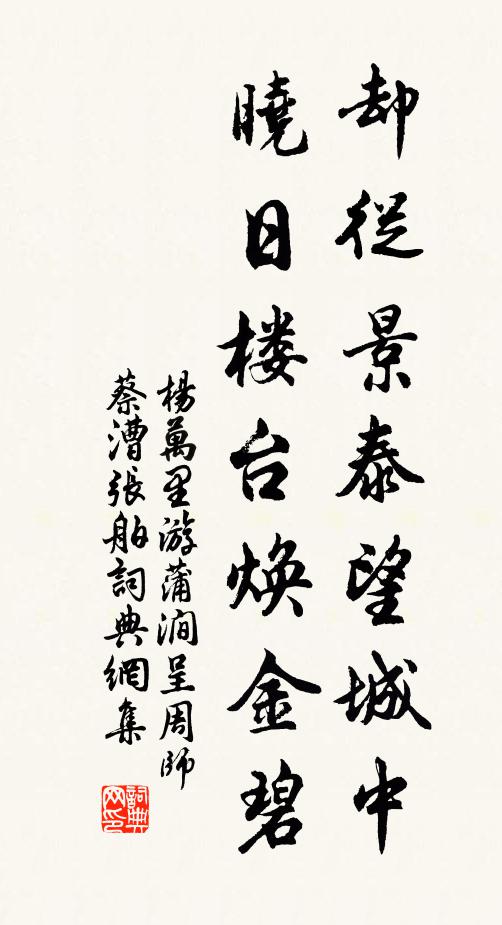 却從景泰望城中
曉日楼台焕金碧
楊萬里游蒲澗呈周師
蔡漕張舶詞典網集
詞典网印